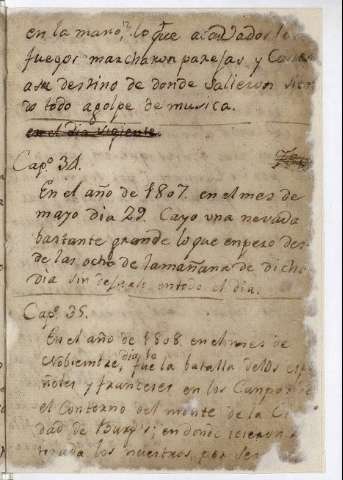 en la mano, lo que acabados los
fuegos marcharon parejas y Ca
a su destino de donde salieron sien
do todo agolpe de musica.
en el dia vigiente.
Capº 34.
En el año de 1807. en el mes de
mayo dia 29. Cayo una nevada
bastante grande lo que enpezo des
de las ocho de lamañana de dicho
dia sin en todo el dia.
Capº 35.
En el año de 1808 en el mes de
Nobiembre, dia 10 fue la batalla delos esp
ñoles y franceses en los Campos de
el Contorno del monte de la Ciu
dad de Burgos; en donde icieron
los nuestros, por ser